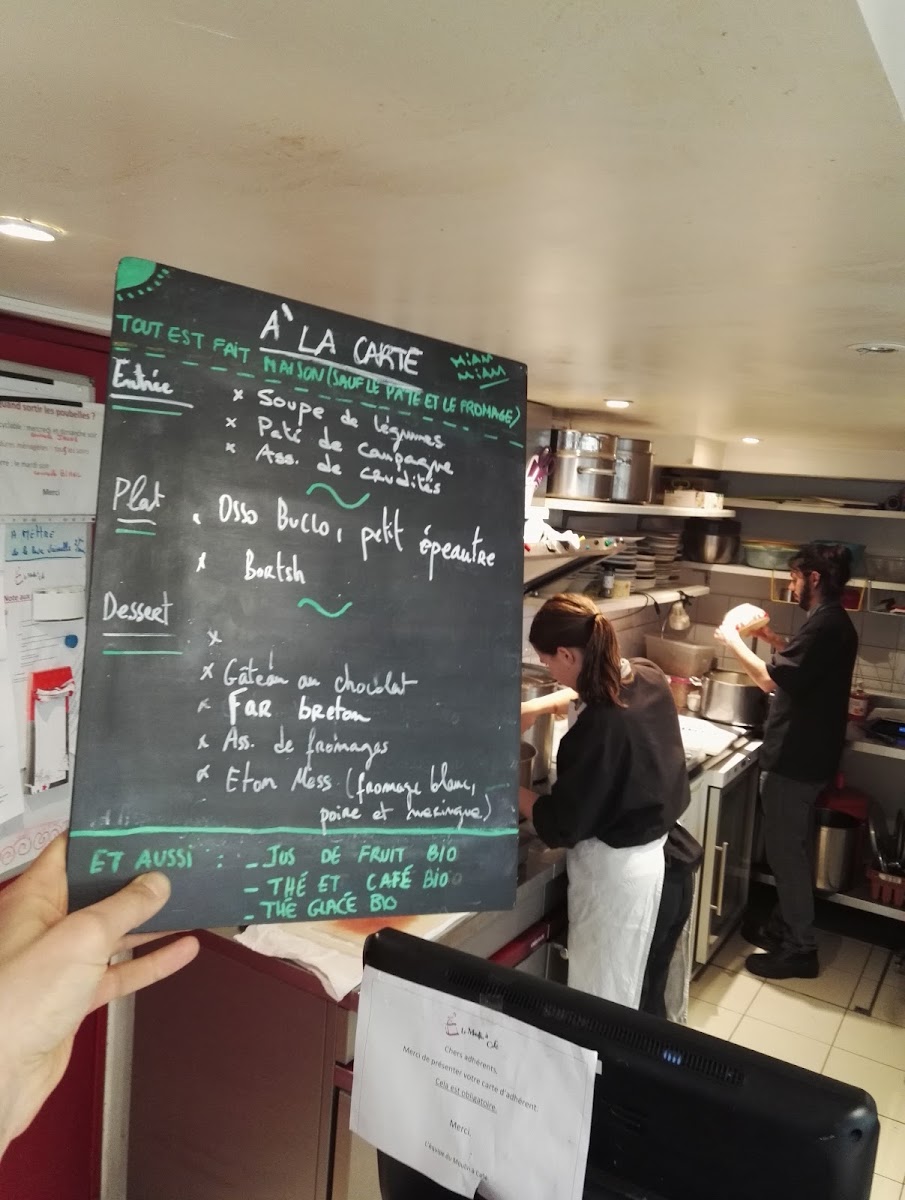 À LA CARTE
MIAM
MIAM
TOUT EST FAIT MAISON (SAUF LE PATE ET LE FROMAGE)
Entrée
x Soupe de légumes
x Paté de campagne
x Ass. de crudités
Plat
Osso Bucco, petit épeautre
x Bortsh
Dessert
x
x Gâteau au chocolat
x Far breton
x Ass. de fromages
x Eton Mess (fromage blanc,
poire et meringue)
ET AUSSI : - JUS DE FRUIT BIO
- THÉ ET CAFÉ BIO
- THÉ GLACÉ BIO
quand sortir les poubelles ?
Merci
A METTRE
Chers adhérents,
Merci de présenter votre carte d'adhérent.
Cela est obligatoire.
Merci.
L'équipe du Moulin à Café